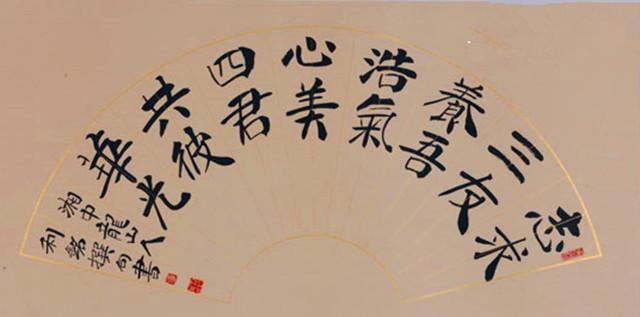 志求
三友
養吾
浩氣
心美
四君
共彼
華光
湘中龍山人
利銘撰句書